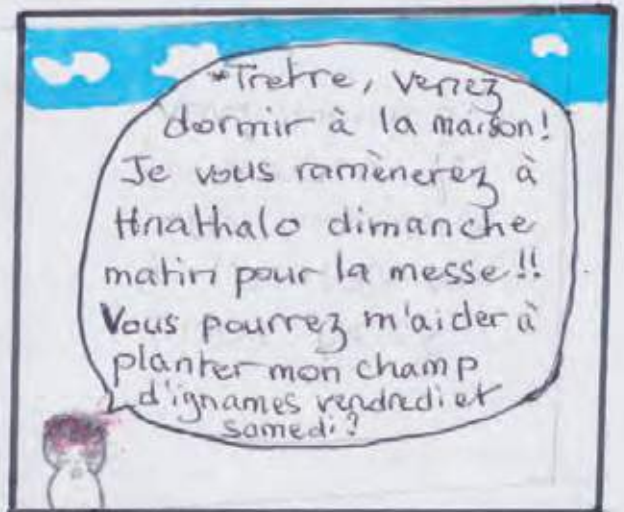 *Tretre, venez
dormir à la maison!
Je vous ramènerez à
Hnathalo dimanche
matin pour la messe!!
Vous pourrez m'aider à
planter mon champ
d'ignames vendredi et
samedi?